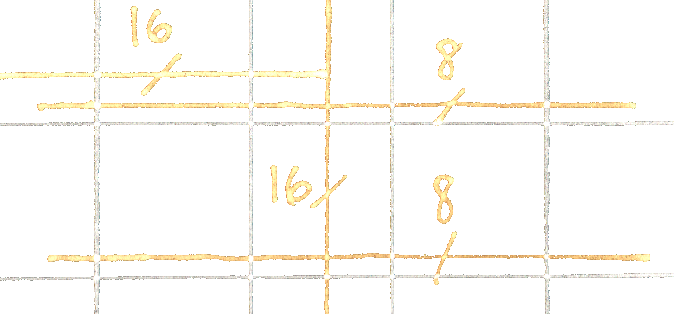 16
8
16
8